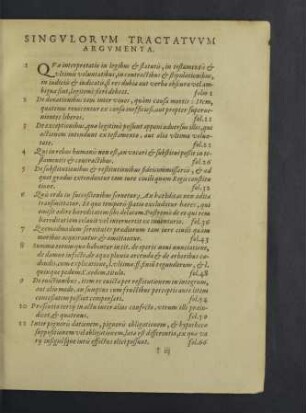 SINGVLORVM TRACTATVVM
ARGVMENTA.
1 QVæ interpretatio in legibus & statutis, in testamentis &
vltimis voluntatibus, in contractibus & stipulationibus,
in iudiciis & indicatis, si res dubia aut verba obscura vel am-
bigua sint, legitimè fieri debeat. folio 1
2 De donationibus tam inter viuos, quàm causa mortis: Item,
quatenus reuocentur ex causa inofficiosi, aut propter superue-
nientes liberos. fol.11
3 De exceptionibus, quæ legitimè possunt opponi aduersus illos, qui
actionem intendunt ex testamento, aut alia vltima volun-
tate. fol.21
4 Qui in rebus humanis non est, an vocari & substitui possit in te-
stamentis & contractibus. fol.26
5 De substitutionibus & restitutionibus fideicommissariis, & ad
quot gradus extendantur tam iure ciuili quàm Regis constitu-
tione. fol.32
6 Quis ordo in successionibus seruetur; An hæreditas non adita
transmittatur, Et quo temporis spatio excludatur hæres, qui
omisit adire hæreditatem sibi delatam. Postremò de eo qui rem
hæreditariam celauit vel intermiscuit ex inuentario. fol.36
7 Quemadmodum seruitutes prædiorum tam iure ciuili quàm
moribus acquirantur & amittantur. fol.43
8 Summa totius quæ habentur in tit. de operis noui nuntiatione,
de damno infecto, de aqua pluuia arcenda & de arboribus cæ-
dendis, cum explicatione, l. vltima ff. finiū regundorum, & l.
quinque pedum C. eodem titulo. fol.48
9 De euictionibus, item ex euicta per restitutionem in integrum,
aut alio modo, an sumptus cum fructibus perceptis ante litem
contestatam possint compensari. fol.54
10 Professio tertij in actu inter alios confecto, vtrum illi præiu-
dicet, & quatenus. fol.59
11 Inter pignoris dationem, pignoris obligationem, & hypothecæ
suppositionem vel obligationem, lata est differentia, ex qua va-
rij insignésque iuris effectus elici possunt. fol.66
† iij